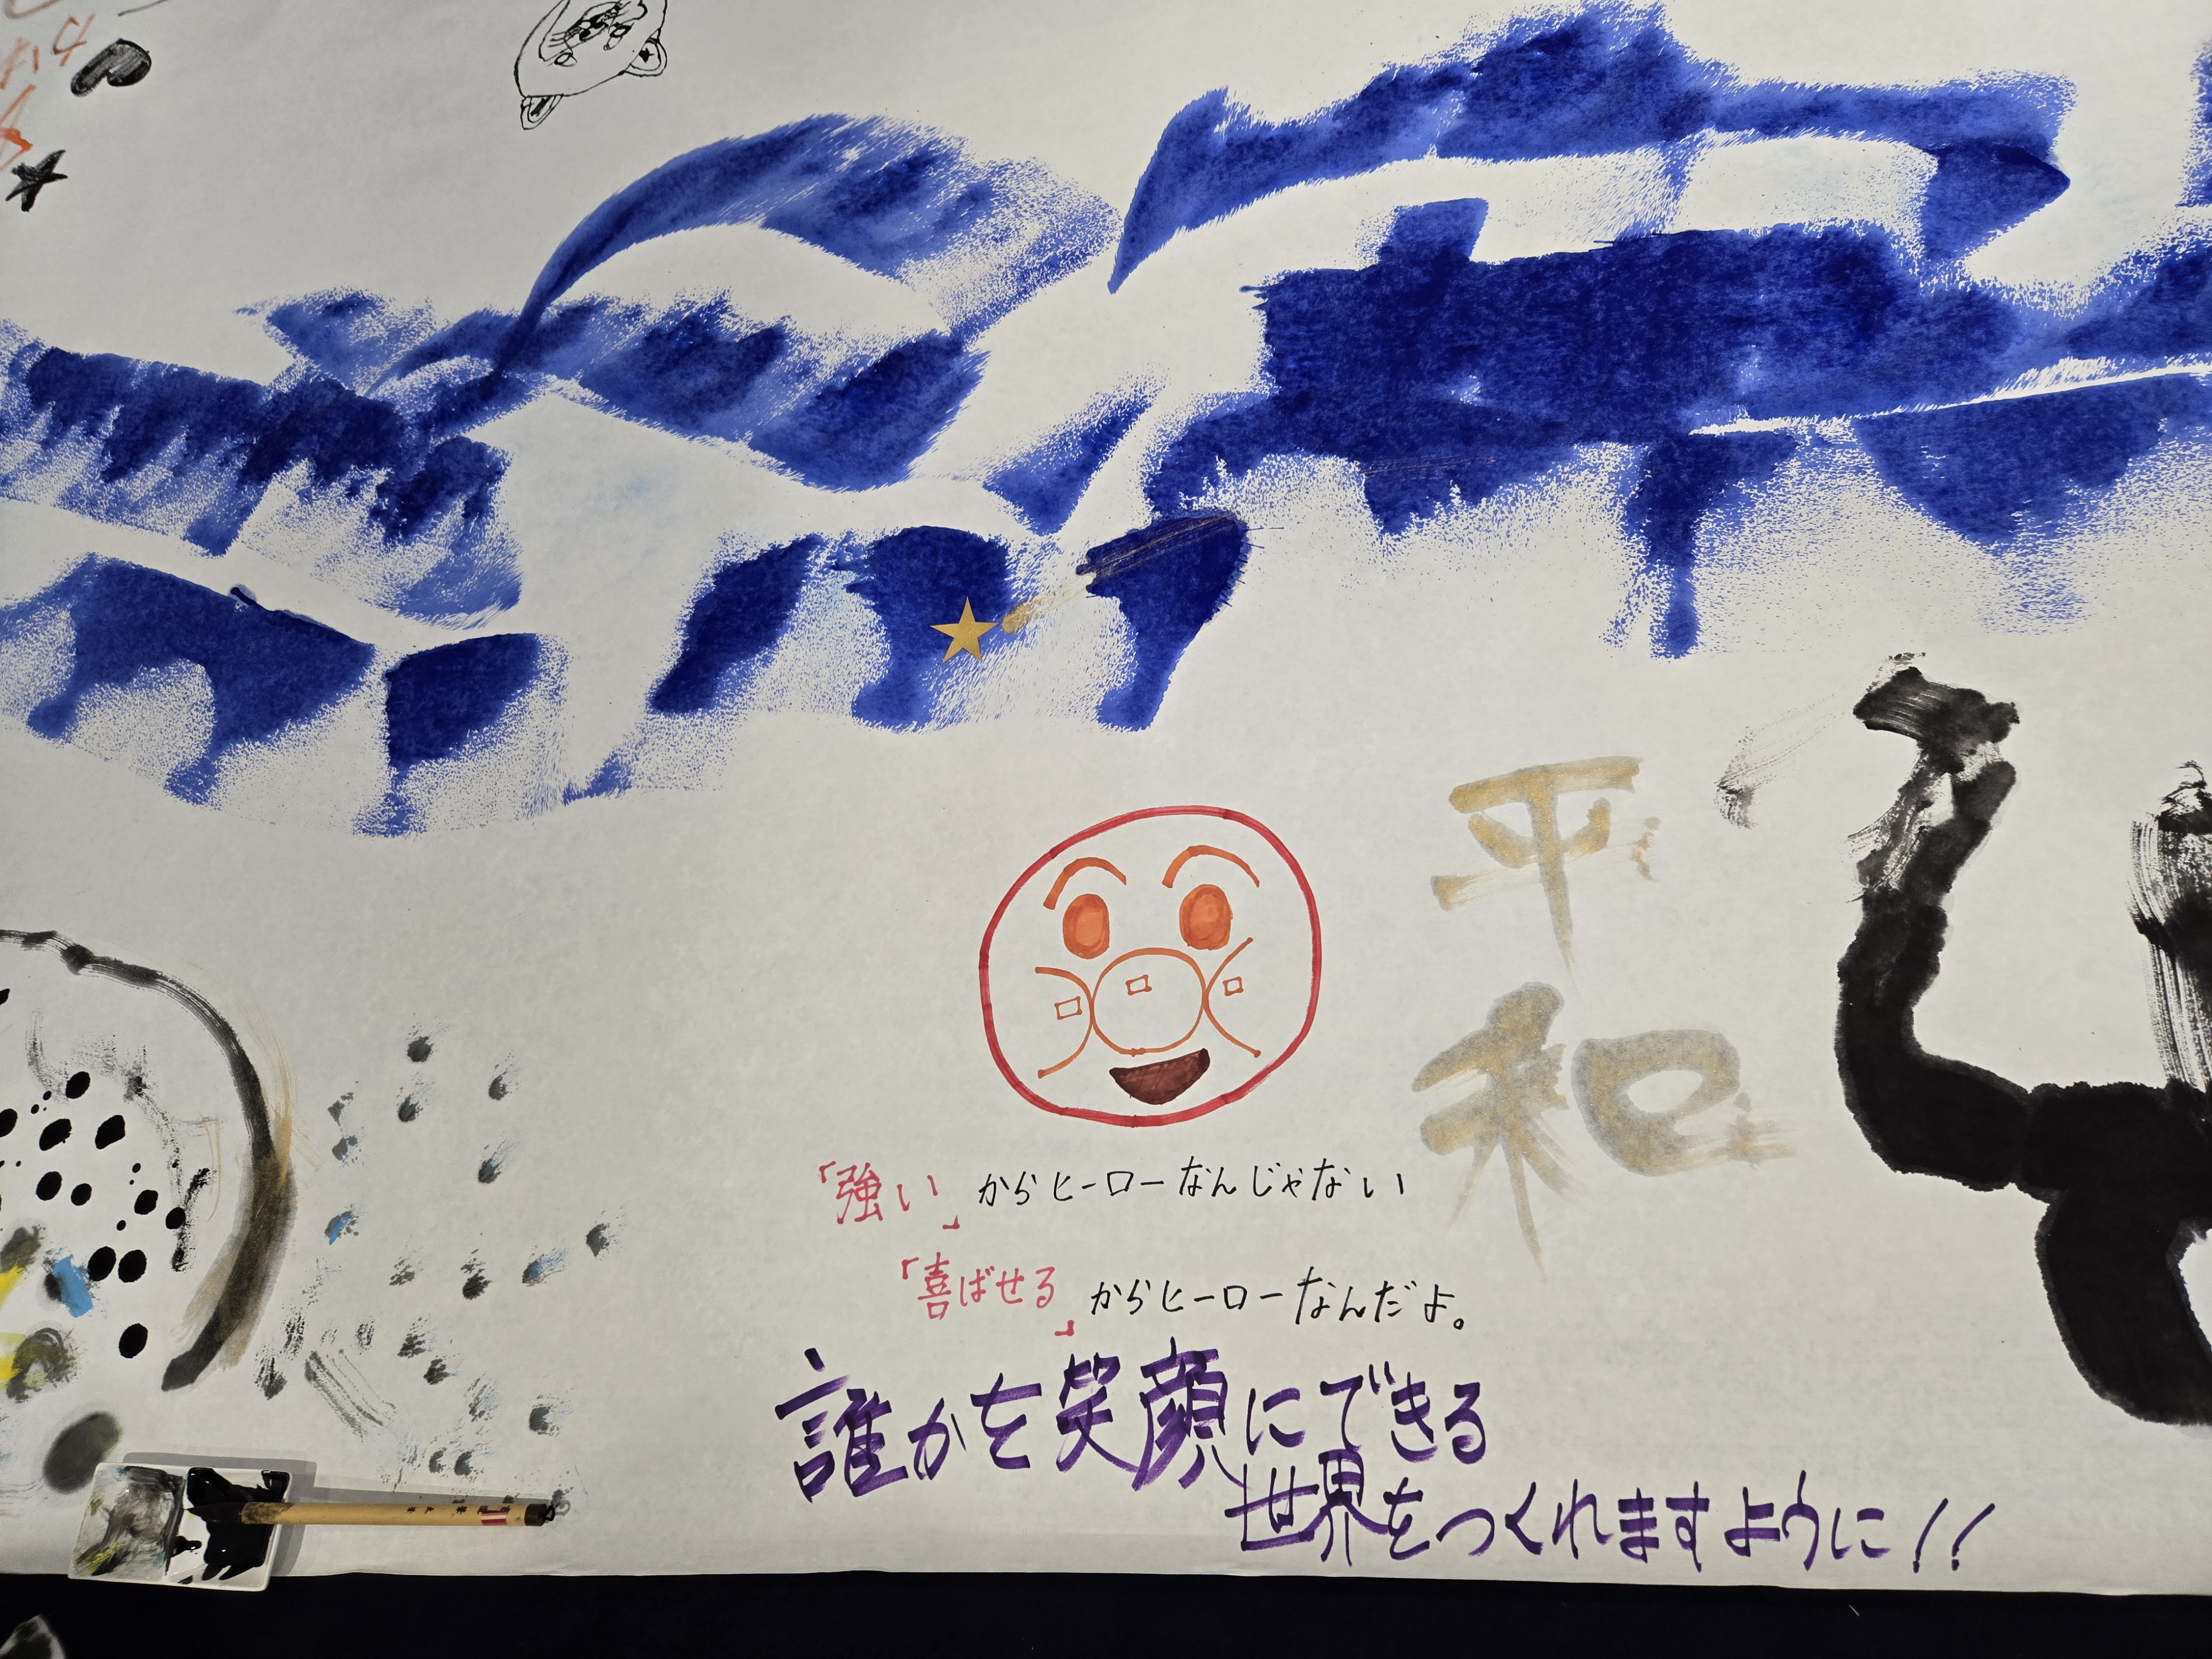 平和
「強い」からヒーローなんじゃない
「喜ばせる」からヒーローなんだよ。
誰かを笑顔にできる
世界をつくれますように!!